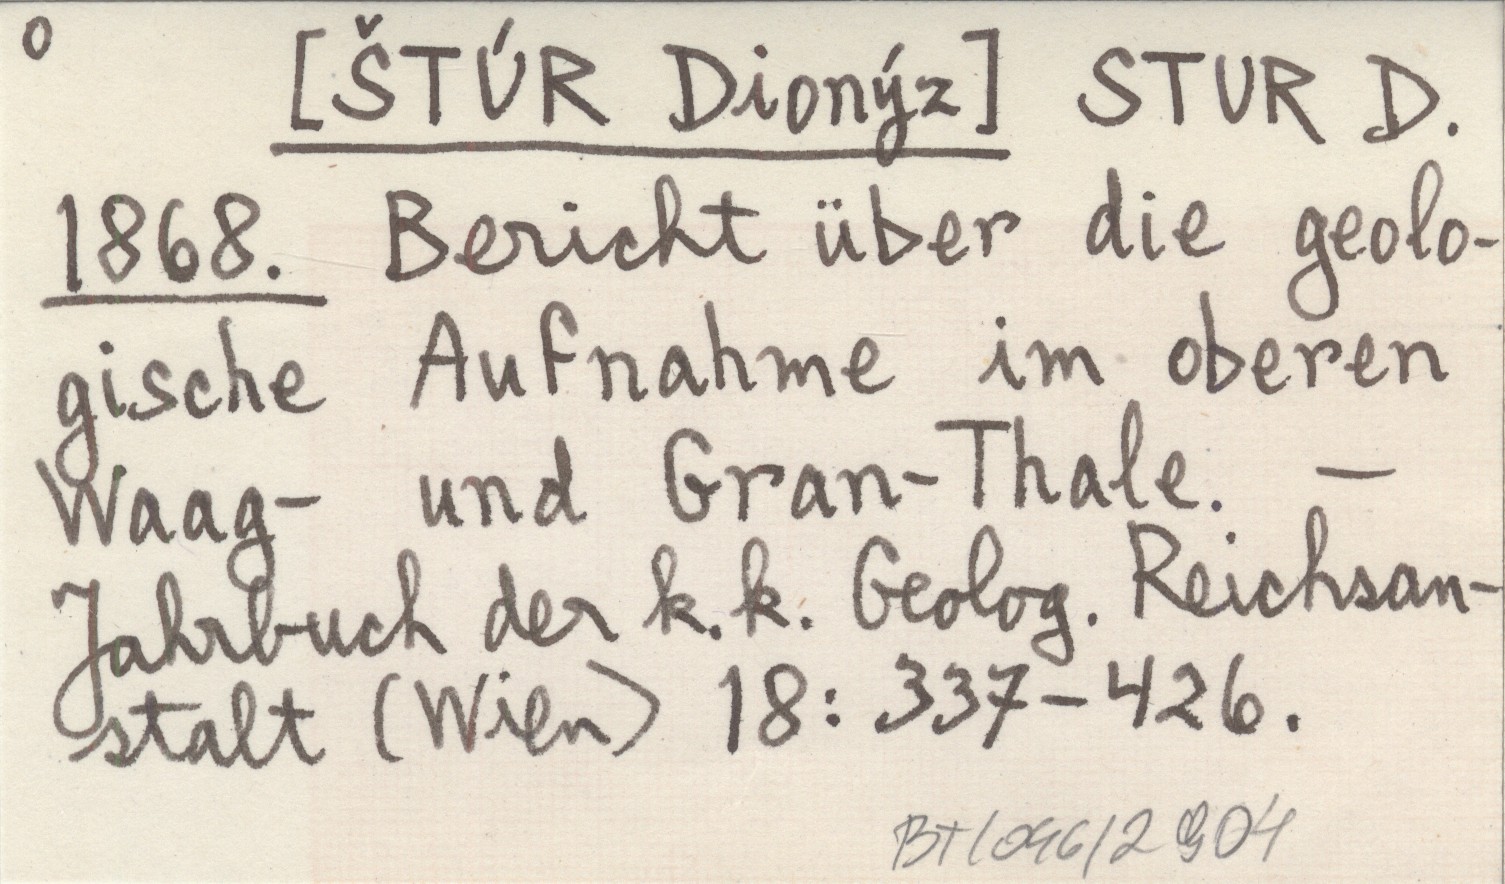 o
[ŠTÚR Dionýz] STUR D.
1868. Bericht über die geolo-
gische Aufnahme im oberen
Waag- und Gran-Thale. —
Jahrbuch der k. k. Geolog. Reichsan-
stalt (Wien) 18: 337-426.